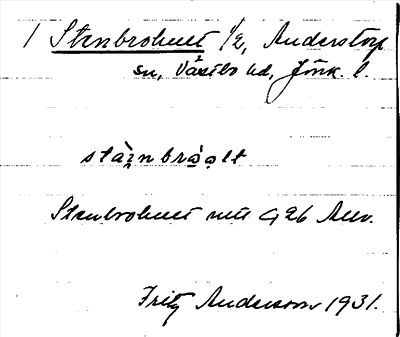 1 Stenbrohult 1/2, Anderstorp
sn, Västbo hd, Jönk. l.
stàinbròolt
Stenbrohult
Fritz Anderson 1931.